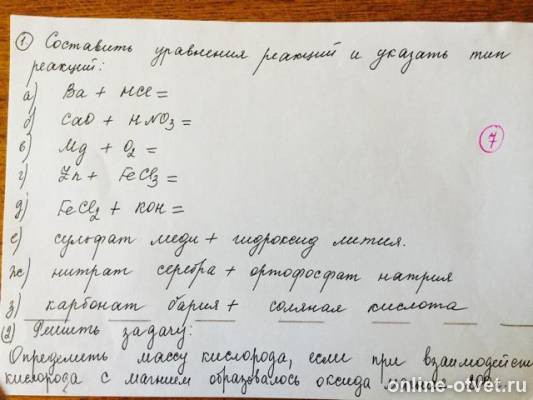 ① Составить уравнения реакций и указать тип
реакций:
а) Ba + HCl =
б) CaO + HNO₃ =
в) Mg + O₂ =
г) Zn + FeCl₃ =
⑦
д) FeCl₂ + KOH =
е) сульфат меди + гидроксид лития.
ж) нитрат серебра + ортофосфат натрия
з) карбонат бария + соляная кислота
② Решить задачу:
Определить массу кислорода, если при взаимодейств
кислорода с магнием образовалось оксида
online-otvet.ru